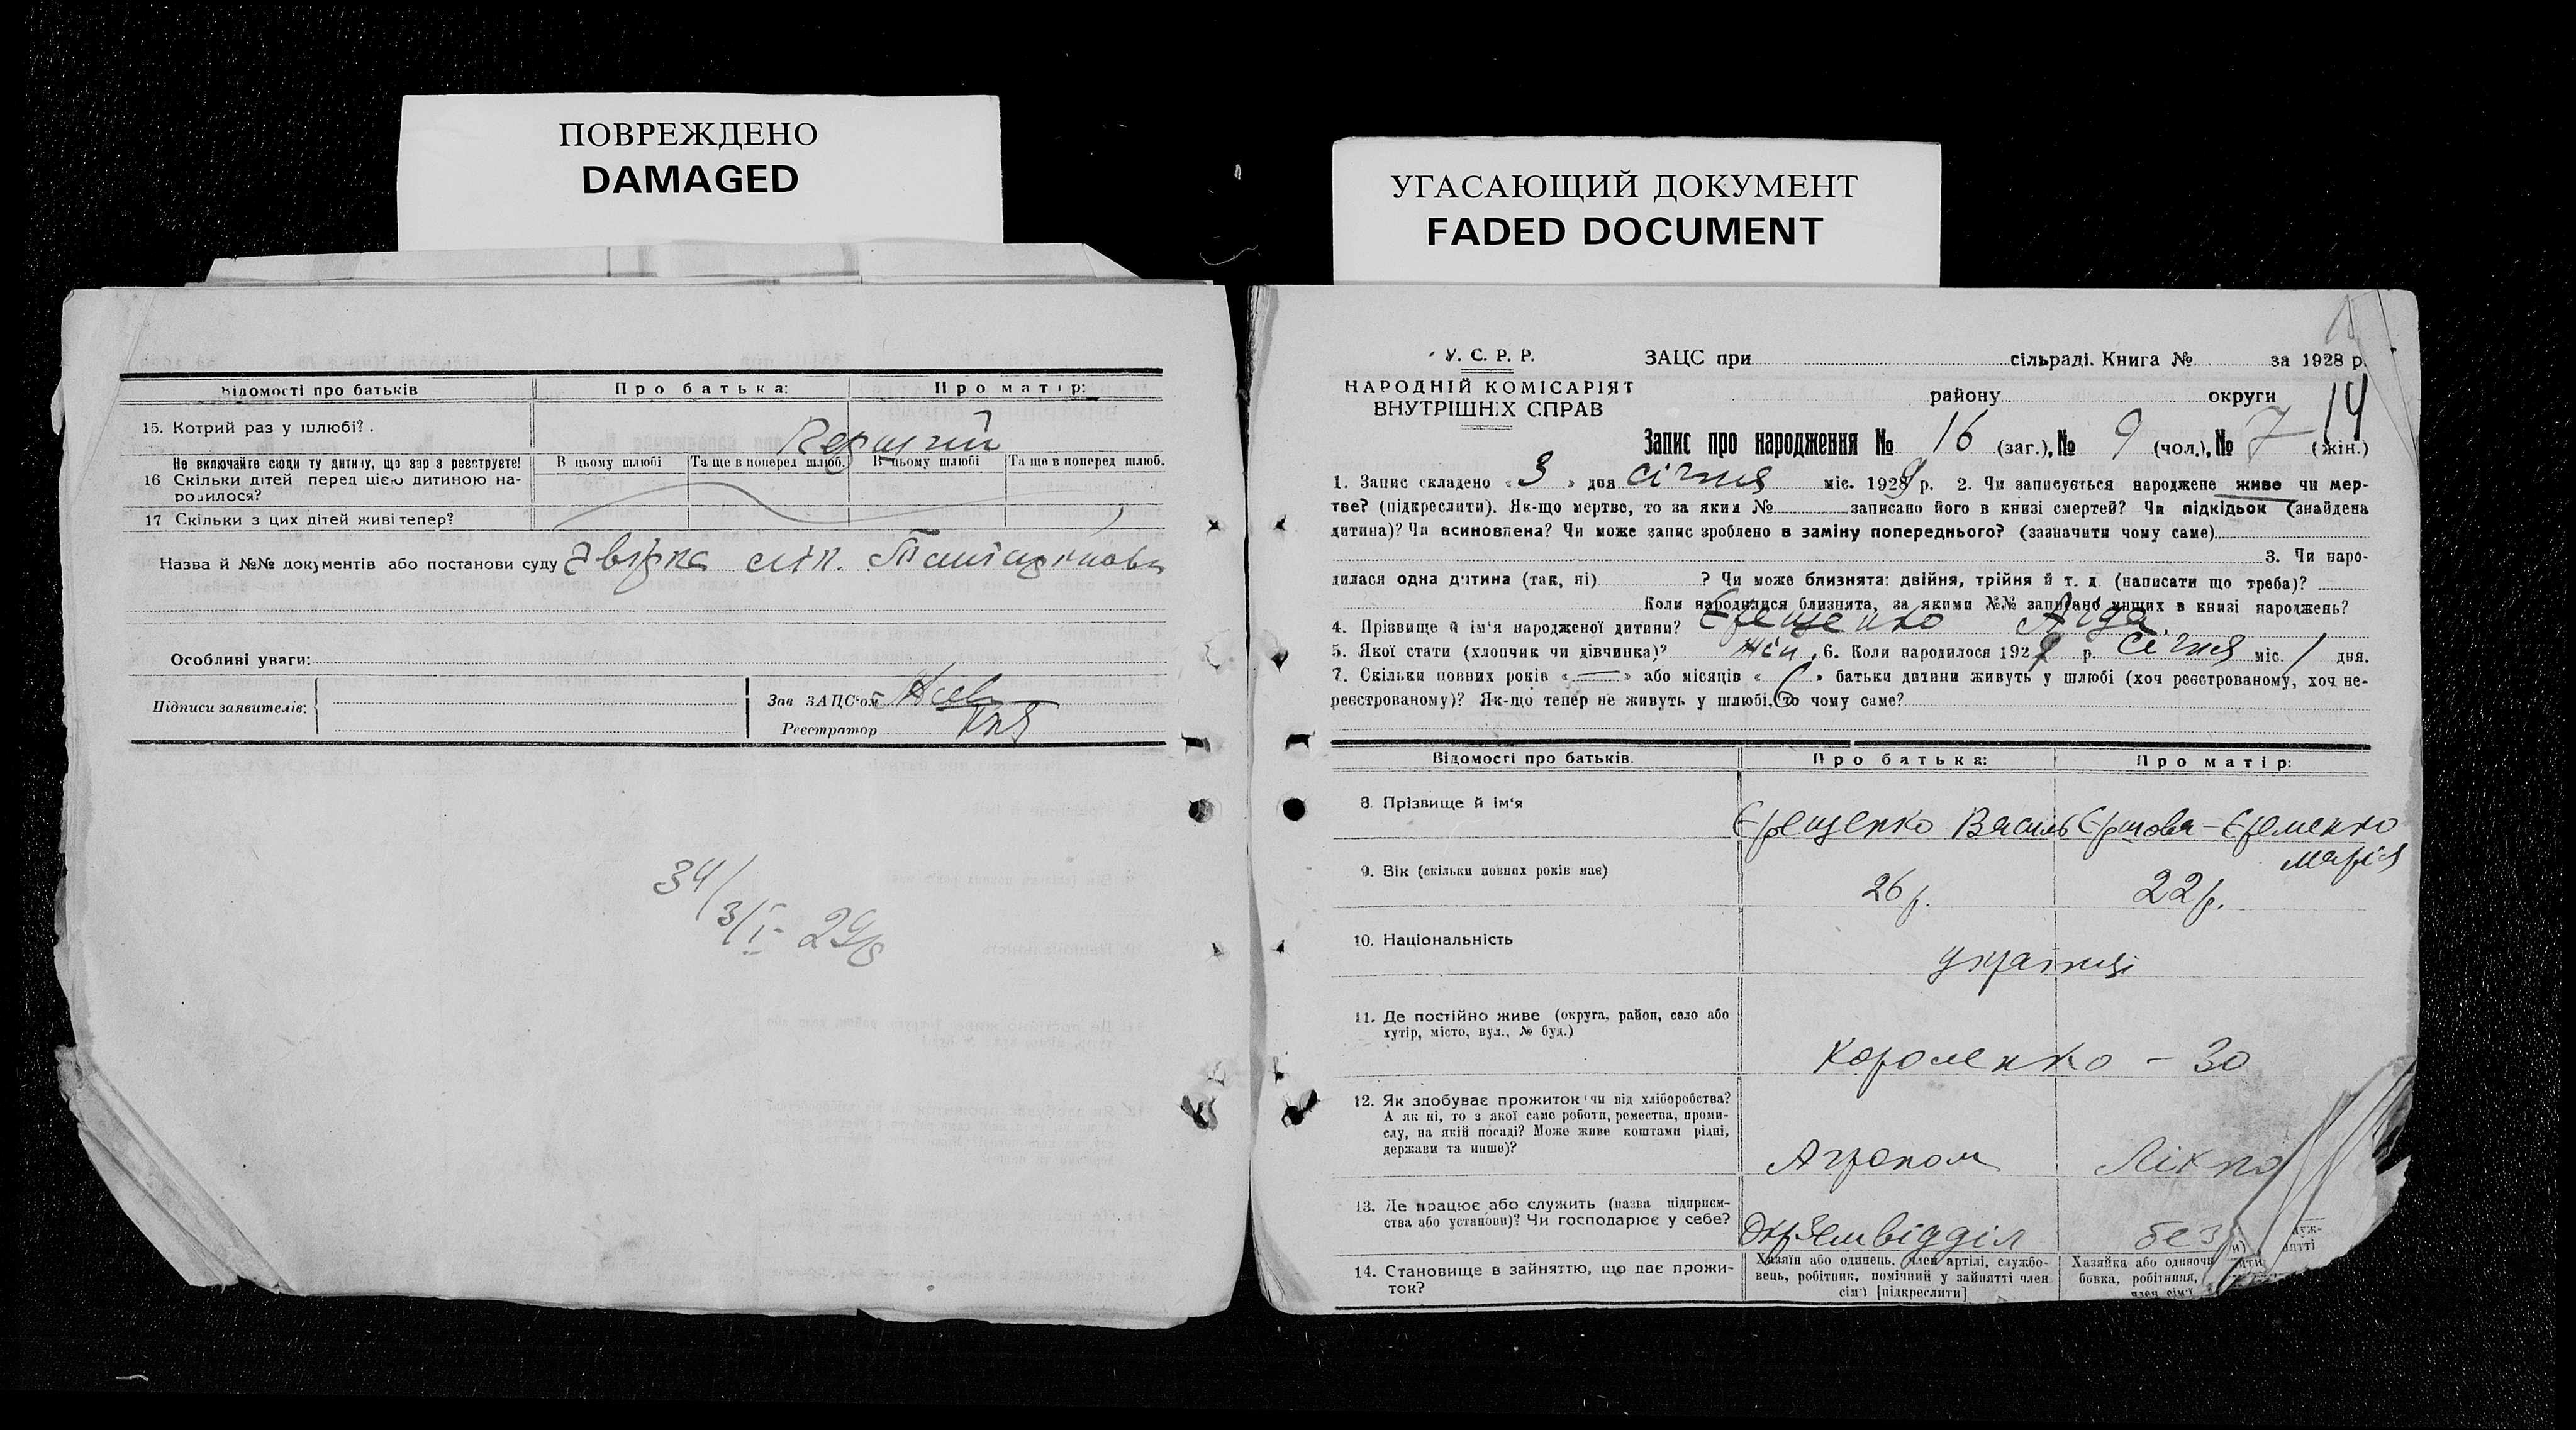 ПОВРЕЖДЕНО
DAMAGED
Відомості про батьків
Про батька:
Про матір:
15. Котрий раз у шлюбі?.
Перший
Не включайте сюди ту дитину, що зар з реєструєте!
В цьому шлюбі
Та ще в поперед шлюб.
В цьому шлюбі
Та ще в поперед шлюб.
16 Скільки дітей перед цією дитиною на-
родилося?
17 Скільки з цих дітей живі тепер?
Назва й №№ документів або постанови суду
Особливі уваги:
Підписи заявителів:
Зав ЗАЦС'ом
Реєстратор
34/
3/I - 29 р
УГАСАЮЩИЙ ДОКУМЕНТ
FADED DOCUMENT
У. С. Р. Р.
НАРОДНІЙ КОМІСАРІЯТ
ВНУТРІШНІХ СПРАВ
ЗАЦС при сільраді. Книга № за 1928 р.
району округи
14
Запис про народження № 16 (заг.), № 9 (чол.), № 7 (жін.)
1. Запис складено « 3 » дня січня міс. 1929 р. 2. Чи записується народжене живе чи мер-
тве? (підкреслити). Як-що мертве, то за яким № записано його в книзі смертей? Чи підкідьок (знайдена
дитина)? Чи всиновлена? Чи може запис зроблено в заміну попереднього? (зазначити чому саме)
3. Чи наро-
дилася одна дитина (так, ні) ? Чи може близнята: двійня, трійня й т. д. (написати що треба)?
Коли народилися близнята, за якими №№ записано инших в книзі народжень?
4. Прізвище й ім'я народженої дитини? Єрещенко Аіда
5. Якої стати (хлопчик чи дівчинка)? жін. 6. Коли народилося 1929 р. січня міс. 1 дня.
7. Скільки повних років « — » або місяців « » батьки дитини живуть у шлюбі (хоч реєстрованому, хоч не-
реєстрованому)? Як-що тепер не живуть у шлюбі, то чому саме?
Відомості про батьків.
Про батька:
Про матір:
8. Прізвище й ім'я
Єрещенко Василь
Єршова-Єременко
Марія
9. Вік (скільки повних років має)
26 р.
22 р.
10. Національність
українці
11. Де постійно живе (округа, район, село або
хутір, місто, вул., № буд.)
Короленко - 30
12. Як здобуває прожиток (чи від хліборобства?
А як ні, то з якої саме роботи, ремества, проми-
слу, на якій посаді? Може живе коштами рідні,
держави та инше)?
Агроном
13. Де працює або служить (назва підприєм-
ства або установи)? Чи господарює у себе?
ОкрЗемвідділ
без
14. Становище в зайняттю, що дає прожи-
ток?
Хазяїн або одинець, член артілі, службо-
вець, робітник, помічний у зайнятті член
сім'ї [підкреслити]
Хазяйка або одиноч
бовка, робітниця,
член сім'ї